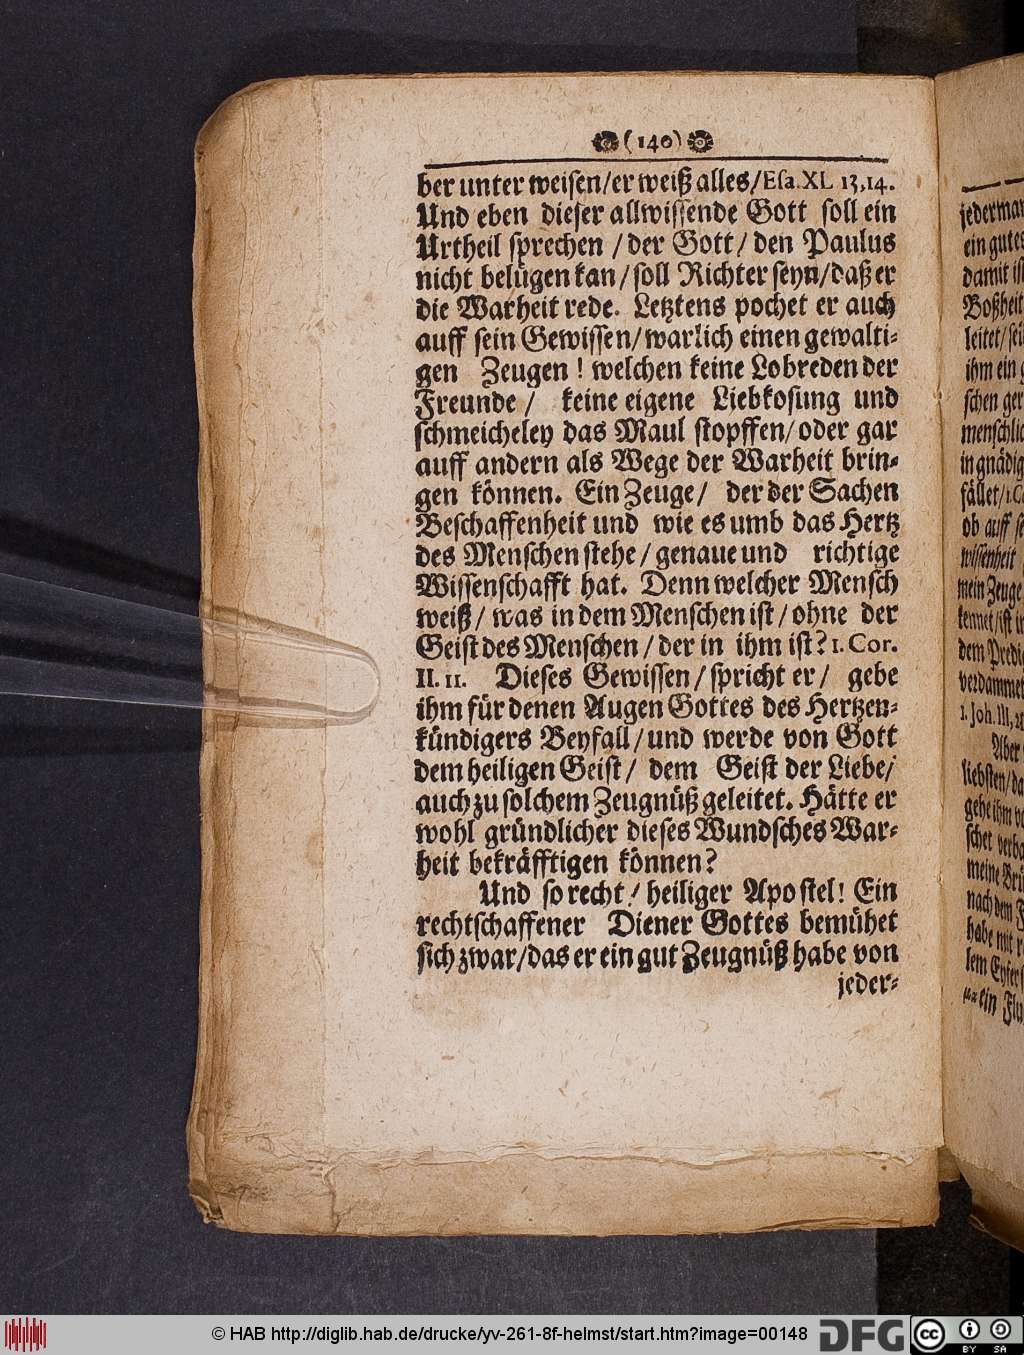 (140)
ber unter weisen/er weiß alles/Esa. XL 13,14.
Und eben dieser allwissende Gott soll ein
Urtheil sprechen /der Gott/ den Paulus
nicht belügen kan/soll Richter seyn/daß er
die Warheit rede. Letztens pochet er auch
auff sein Gewissen/warlich einen gewalti-
gen Zeugen! welchen keine Lobreden der
Freunde / keine eigene Liebkosung und
schmeicheley das Maul stopffen/oder gar
auff andern als Wege der Warheit brin-
gen können. Ein Zeuge/ der der Sachen
Beschaffenheit und wie es umb das Hertz
des Menschen stehe/genaue und richtige
Wissenschafft hat. Denn welcher Mensch
weiß/ was in dem Menschen ist/ohne der
Geist des Menschen/der in ihm ist? 1. Cor.
II. 11. Dieses Gewissen/spricht er/ gebe
ihm für denen Augen Gottes des Hertzen-
kündigers Beyfall/und werde von Gott
dem heiligen Geist/ dem Geist der Liebe/
auch zu solchem Zeugnüß geleitet. Hätte er
wohl gründlicher dieses Wundsches War-
heit bekräfftigen können?
Und so recht/ heiliger Apostel! Ein
rechtschaffener Diener Gottes bemühet
sich zwar/das er ein gut Zeugnüß habe von
jeder-
ein gutes
damit
Boßheit
leitet/
ihm ein
in gnädig
fället/
ob auff
wissenheit
mein Zeuge
kennet/ist
dem
verdammet
1. Joh. III,
Aber
liebsten/
gebe ihm
schet
meine
nach dem
habe mit
lem Eyfer
ein
© HAB http://diglib.hab.de/drucke/yv-261-8f-helmst/start.htm?image=00148
DFG
cc
BY SA